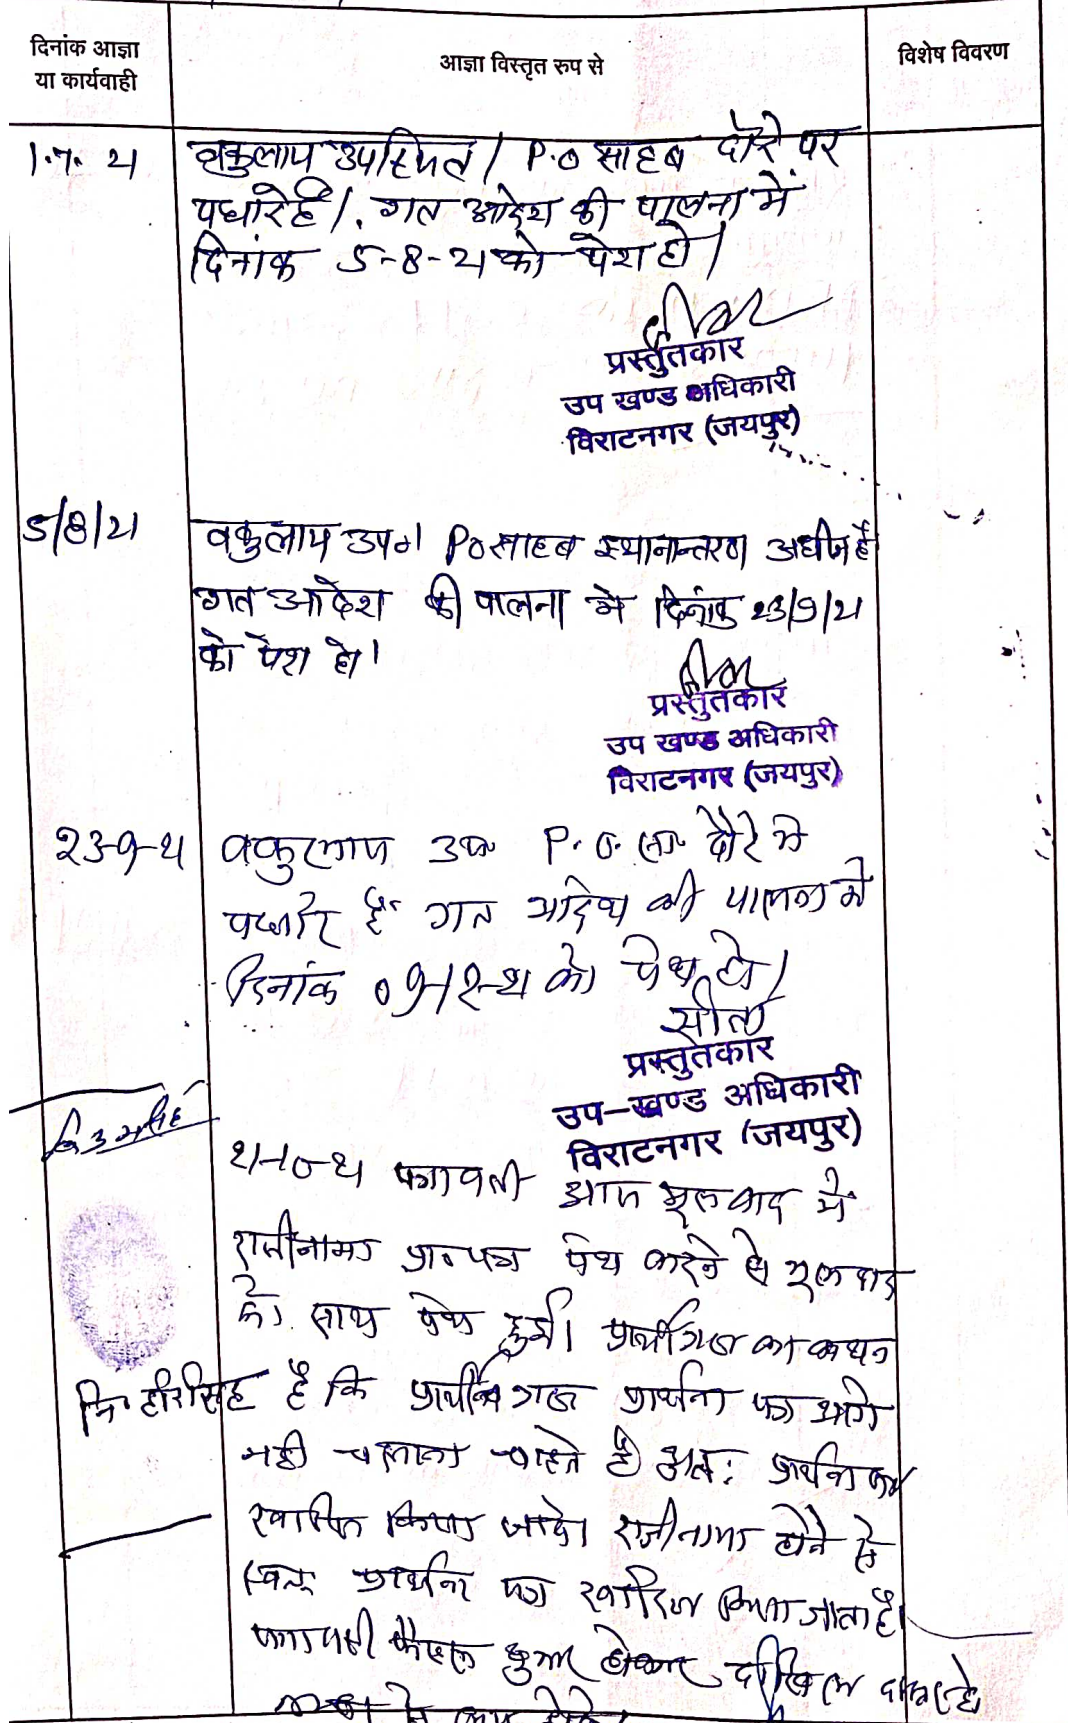 दिनांक आज्ञा
या कार्यवाही
आज्ञा विस्तृत रुप से
विशेष विवरण
1.7.21
वकुलाय उपस्थित। P.O साहब दौरे पर
पधारे है। गत आदेश की पालना में
दिनांक 5-8-21 को पेश हो।
प्रस्तुतकार
उप खण्ड अधिकारी
विराटनगर (जयपुर)
5/8/21
वकुलाय उप०। PO साहब स्थानान्तरण अधीन है
गत आदेश की पालना मे दिनांक 23/9/21
को पेश हो।
प्रस्तुतकार
उप खण्ड अधिकारी
विराटनगर (जयपुर)
23-9-21
वकुलाय उप० P.O. सा० दौरे मे
पधारे है गत आदेश की पालना मे
दिनांक 09-12-21 को पेश हो।
सीता
प्रस्तुतकार
उप-खण्ड अधिकारी
विराटनगर (जयपुर)
21-10-21 पत्रावली आज मूलवाद मे
राजीनामा पेश करने से मूल वाद
के साथ पेश हुई। प्रार्थीगण का कथन
नि० हरिसिंह
है कि प्रार्थीगण प्रार्थना पत्र आगे
नही चलाना चाहते है अतः प्रार्थना पत्र
खारिज किया जावे। राजीनामा होने से
प्रार्थना पत्र खारिज किया जाता है।
पत्रावली फैसल शुमार होकर दाखिल दफ्तर हो